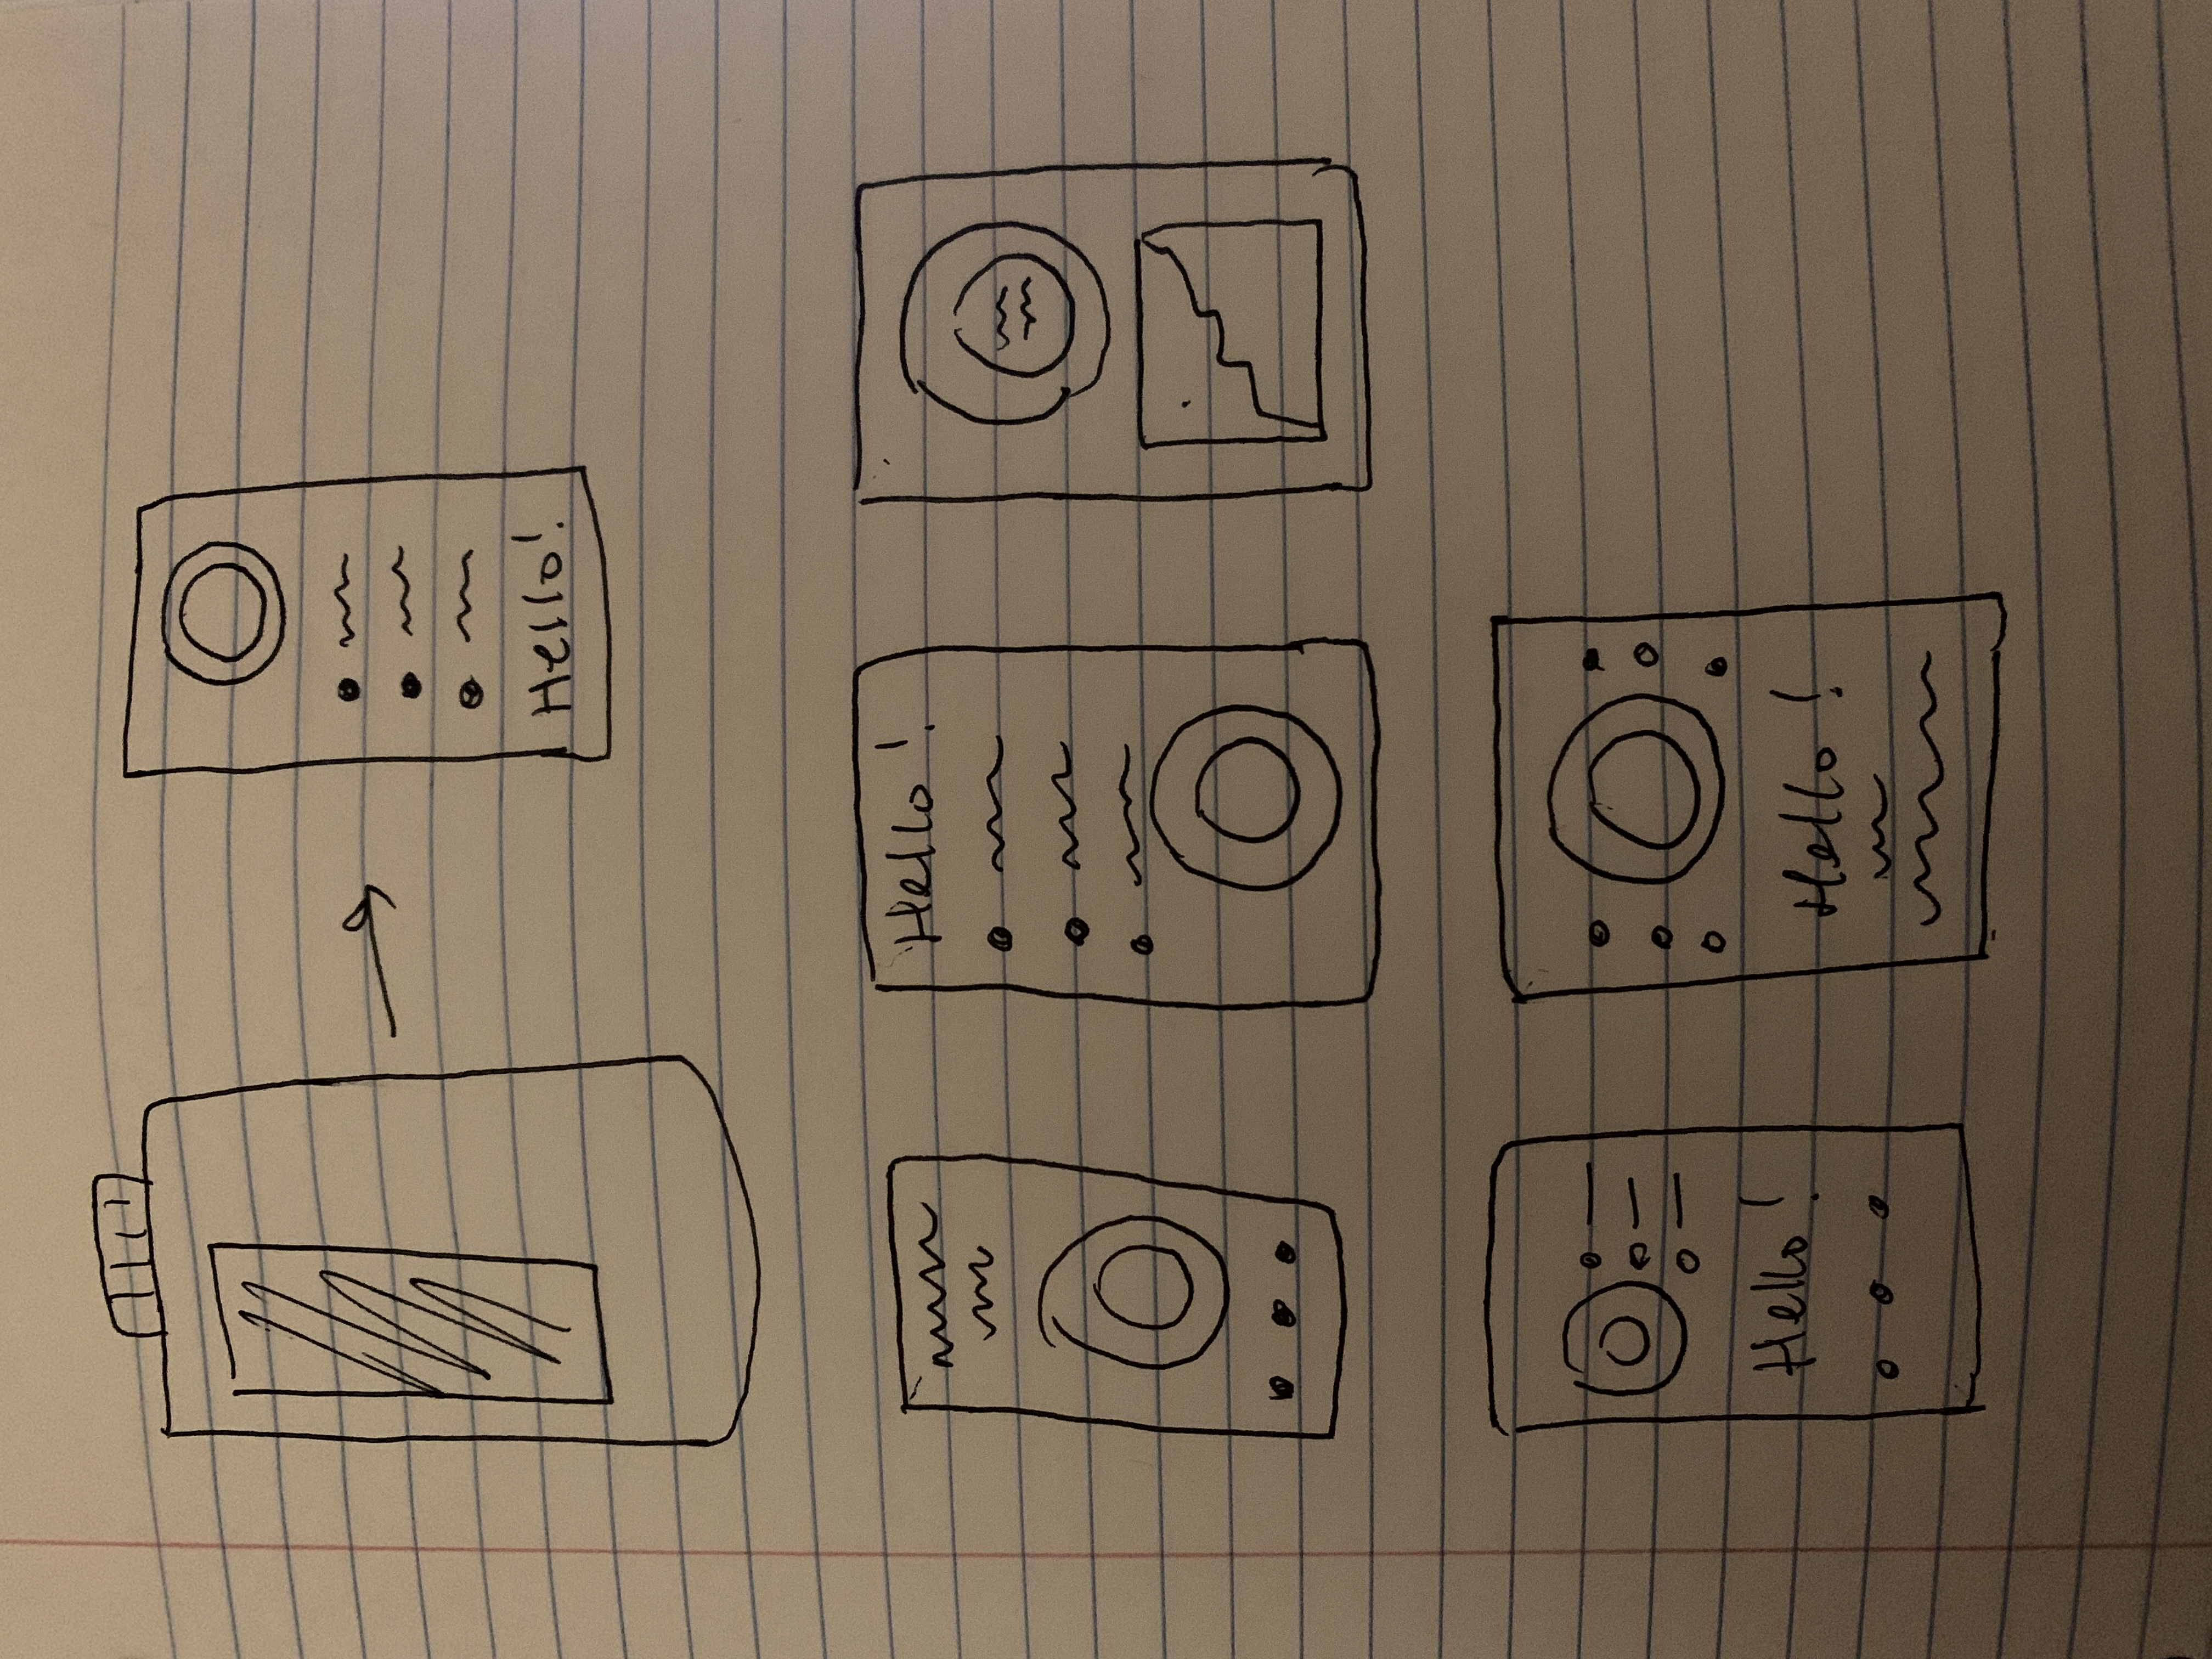 Hello!
Hello!
Hello!
Hello!